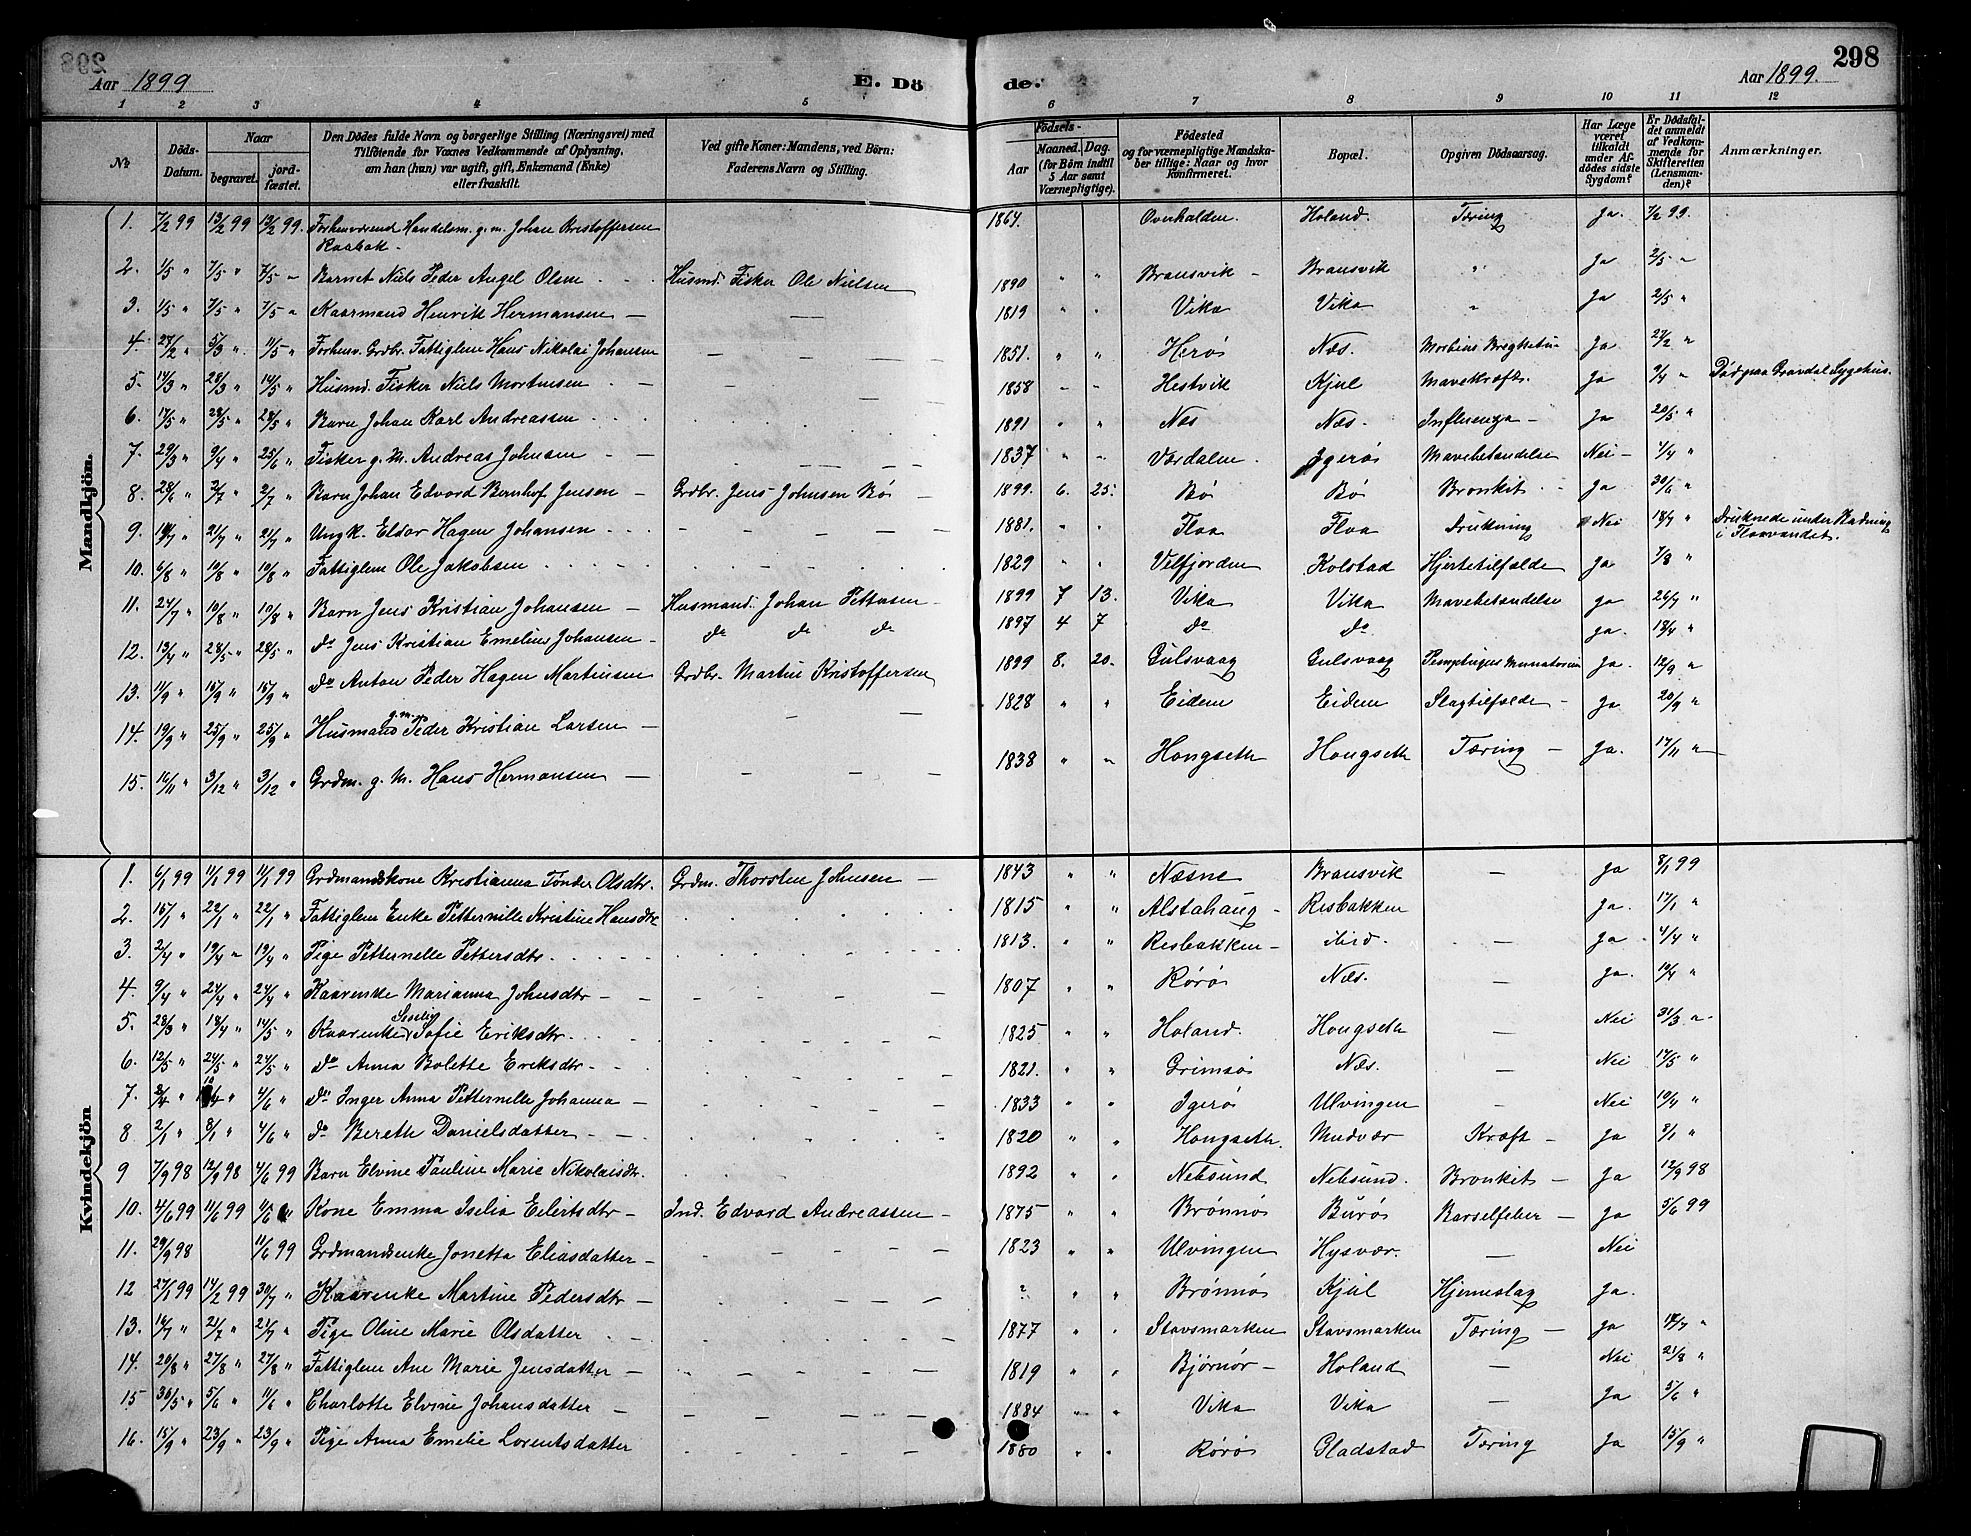 298
Aar 1899
E. Dö
de.
Aar 1899.
1 2 3 4 5 6 7 8 9 10 11 12
No
Döds-Datum.
Naar
begravet.
jordfæstet.
Den Dödes fulde Navn og borgerlige Stilling (Næringsvei) med
Tilföiende for Voxnes Vedkommende af Oplysning,
om han (hun) var ugift, gift, Enkemand (Enke)
eller fraskilt.
Ved gifte Koner: Mandens, ved Börn:
Faderens Navn og Stilling.
Födsels-
Aar
Maaned. Dag.
(for Börn indtil
5 Aar samt
Værnepligtige).
Födested
og for værnepligtige Mandskaber tillige: Naar og hvor
Konfirmeret.
Bopæl.
Opgiven Dödsaarsag.
Har Læge
været
tilkaldt
under Afdödes sidste
Sygdom?
Er Dödsfaldet anmeldt
af Vedkommende for
Skifteretten
(Lensmanden)?
Anmærkninger.
Mandkjön.
1. 7/2 99 13/2 99 13/2 99. Forhenværend Handelsm. g. m. Johan Kristoffersen 1864. Overhalden. Holand. Tæring Ja. 7/2 99.
Raabak.
2. 1/5 " 7/5 " 7/5 " Barnet Niels Peder Angel Olsen Husmd. Fisker Ole Nielsen 1890 " " Bransvik Bransvik " Ja 2/5 "
3. 1/5 " 7/5 " 7/5 " Kaarmand Henrik Hermansen 1819 " " Vika Vika " Ja 2/5 "
4. 28/2 " 5/3 " 11/5 " Forhenv. Grdbr. Fattiglem Hans Nikolai Johansen 1851. " " Herø Næs. Morbus Ja. 27/2 "
5. 14/3 " 28/3 " 14/5 " Husmd. Fisker Niels Mortensen 1858 Hestvik Kjul Mavekræft. Ja 9/4 " Död paa Gravdal Sygehus.
6. 17/5 " 28/5 " 28/5 " Barn Johan Karl Andreassen 1891 " " Næs Næs. Influenza Ja 20/5 "
7. 29/3 " 9/4 " 25/6 " Fisker g. M. Andreas Johnsen 1837 " " Værdalen Igerø Mavebetændelse Nei 4/4 "
8. 28/6 " 2/7 " 2/7 Barn Johan Edvard Bernhof Jensen Grdbr. Jens Johnsen Bø 1899. 6. 25. Bø Bø Bronkit. Ja 30/6 "
9. 14/7 " 21/7 " 21/7 " Ungk. Eldar Hagen Johansen 1881. " " Floa Floa Drukning Nei 18/7 " Druknede under Badning
i Floavandet.
10. 6/8 " 10/8 " 10/8 " Fattiglem Ole Jakobsen 1829 " " Velfjorden Kolstad Hjertetilfælde Ja. 7/8 "
11. 24/7 " 10/8 " 10/8 " Barn Jens Kristian Johansen Husmand. Johan Pettersen 1899 7 13. Vika Vika Mavebetændelse Ja 26/7 "
12. 13/4 " 28/5 " 28/5 " do Jens Kristian Emelius Johansen do do do 1897 4 7 do do. Ja. 18/4 "
13. 11/9 " 15/9 " 15/9 " do Anton Peder Hagen Martinsen Grdbr. Martin Kristoffersen 1899 8. 20. Gulsvaag Gulsvaag Ja. 12/9 "
14. 19/9 " 25/9 " 25/9 " Husmand g. m. Peder Kristian Larsen 1828 " " Eidem Eidem Slagtilfælde Ja 20/9 "
15. 16/11 " 3/12 " 3/12 " Grdm. g. M. Hans Hermansen 1838 " " Hongseth Hongseth Tæring Ja. 17/11 "
Kvindekjön
1. 6/1 99 11/1 99 11/1 99 Grdmandskone Kristianna Tønder Olsdtr. Grdm. Thorsten Johnsen 1843 " " Næsne Bransvik Ja 8/1 99
2. 15/1 " 22/1 " 22/1 " Fattiglem Enke Petternille Kristine Hansdtr 1815 " " Alstahaug Resbakken Ja. 17/1 "
3. 2/4 " 19/4 " 19/4 " Pige Petternelle Pettersdtr 1813. " " Resbakken ibid. Ja 4/4 "
4. 9/4 " 24/4 " 24/4 " Kaarenke Marianna Johnsdtr 1807 " " Rørø Næs. Ja. 10/4 "
5. 28/3 " 18/4 " 14/5 " Kaarenke Seselig Sofie Eriksdtr. 1825 " " Holand. Hongseth Nei 31/3 "
6. 12/5 " 24/5 " 24/5 " do Anna Bolette Eriksdtr. 1821. " " Grimsø Næs. Nei 17/5 "
7. 3/4 " 10/4 " 4/6 " do Inger Anna Petternelle Johanna 1833 " " Igerø Ulvingen Nei 10/4 "
8 2/1 " 8/1 " 4/6 " do Bereth Danielsdatter 1820 " " Hongseth. Mudvær Kræft Ja 3/1 "
9 7/9 98 12/9 98 4/6 99 Barn Elvine Pauline Marie Nikolaisdtr. 1892 " " Nebsund Nebsund. Bronkit Ja 12/9 98
10. 4/6 99 11/6 99 11/6 Kone Emma Iselia Eilertsdtr Ind. Edvard Andreassen 1875 " " Brønnø Burø Barselfeber Ja 5/6 99
11. 29/9 98 11/6 99 Grdmandsenke Jonetta Eliasdatter 1823 " " Ulvingen Hysvær. Nei
12 27/1 99 14/2 99 30/7 " Kaarenke Martine Pedersdtr ? " " Brønnø Kjul Hjerneslag Ja.
13. 16/7 " 21/7 " 21/7 " Pige Oline Marie Olsdatter 1877 " " Stavsmarken Stavsmarken Tæring Ja 18/7 "
14. 20/8 " 27/8 " 27/8 " Fattiglem Ane Marie Jensdatter 1819 " " Bjørnør Holand Nei 21/8 "
15 30/5 " 5/6 " 11/6 " Charlotte Elvine Johansdatter 1884 " " Vika Vika Ja 5/6 "
16. 15/9 " 23/9 " 23/9 " Pige Anna Emelie Lorentsdatter 1880 " " Rørø Gladstad Tæring Ja 15/9 "